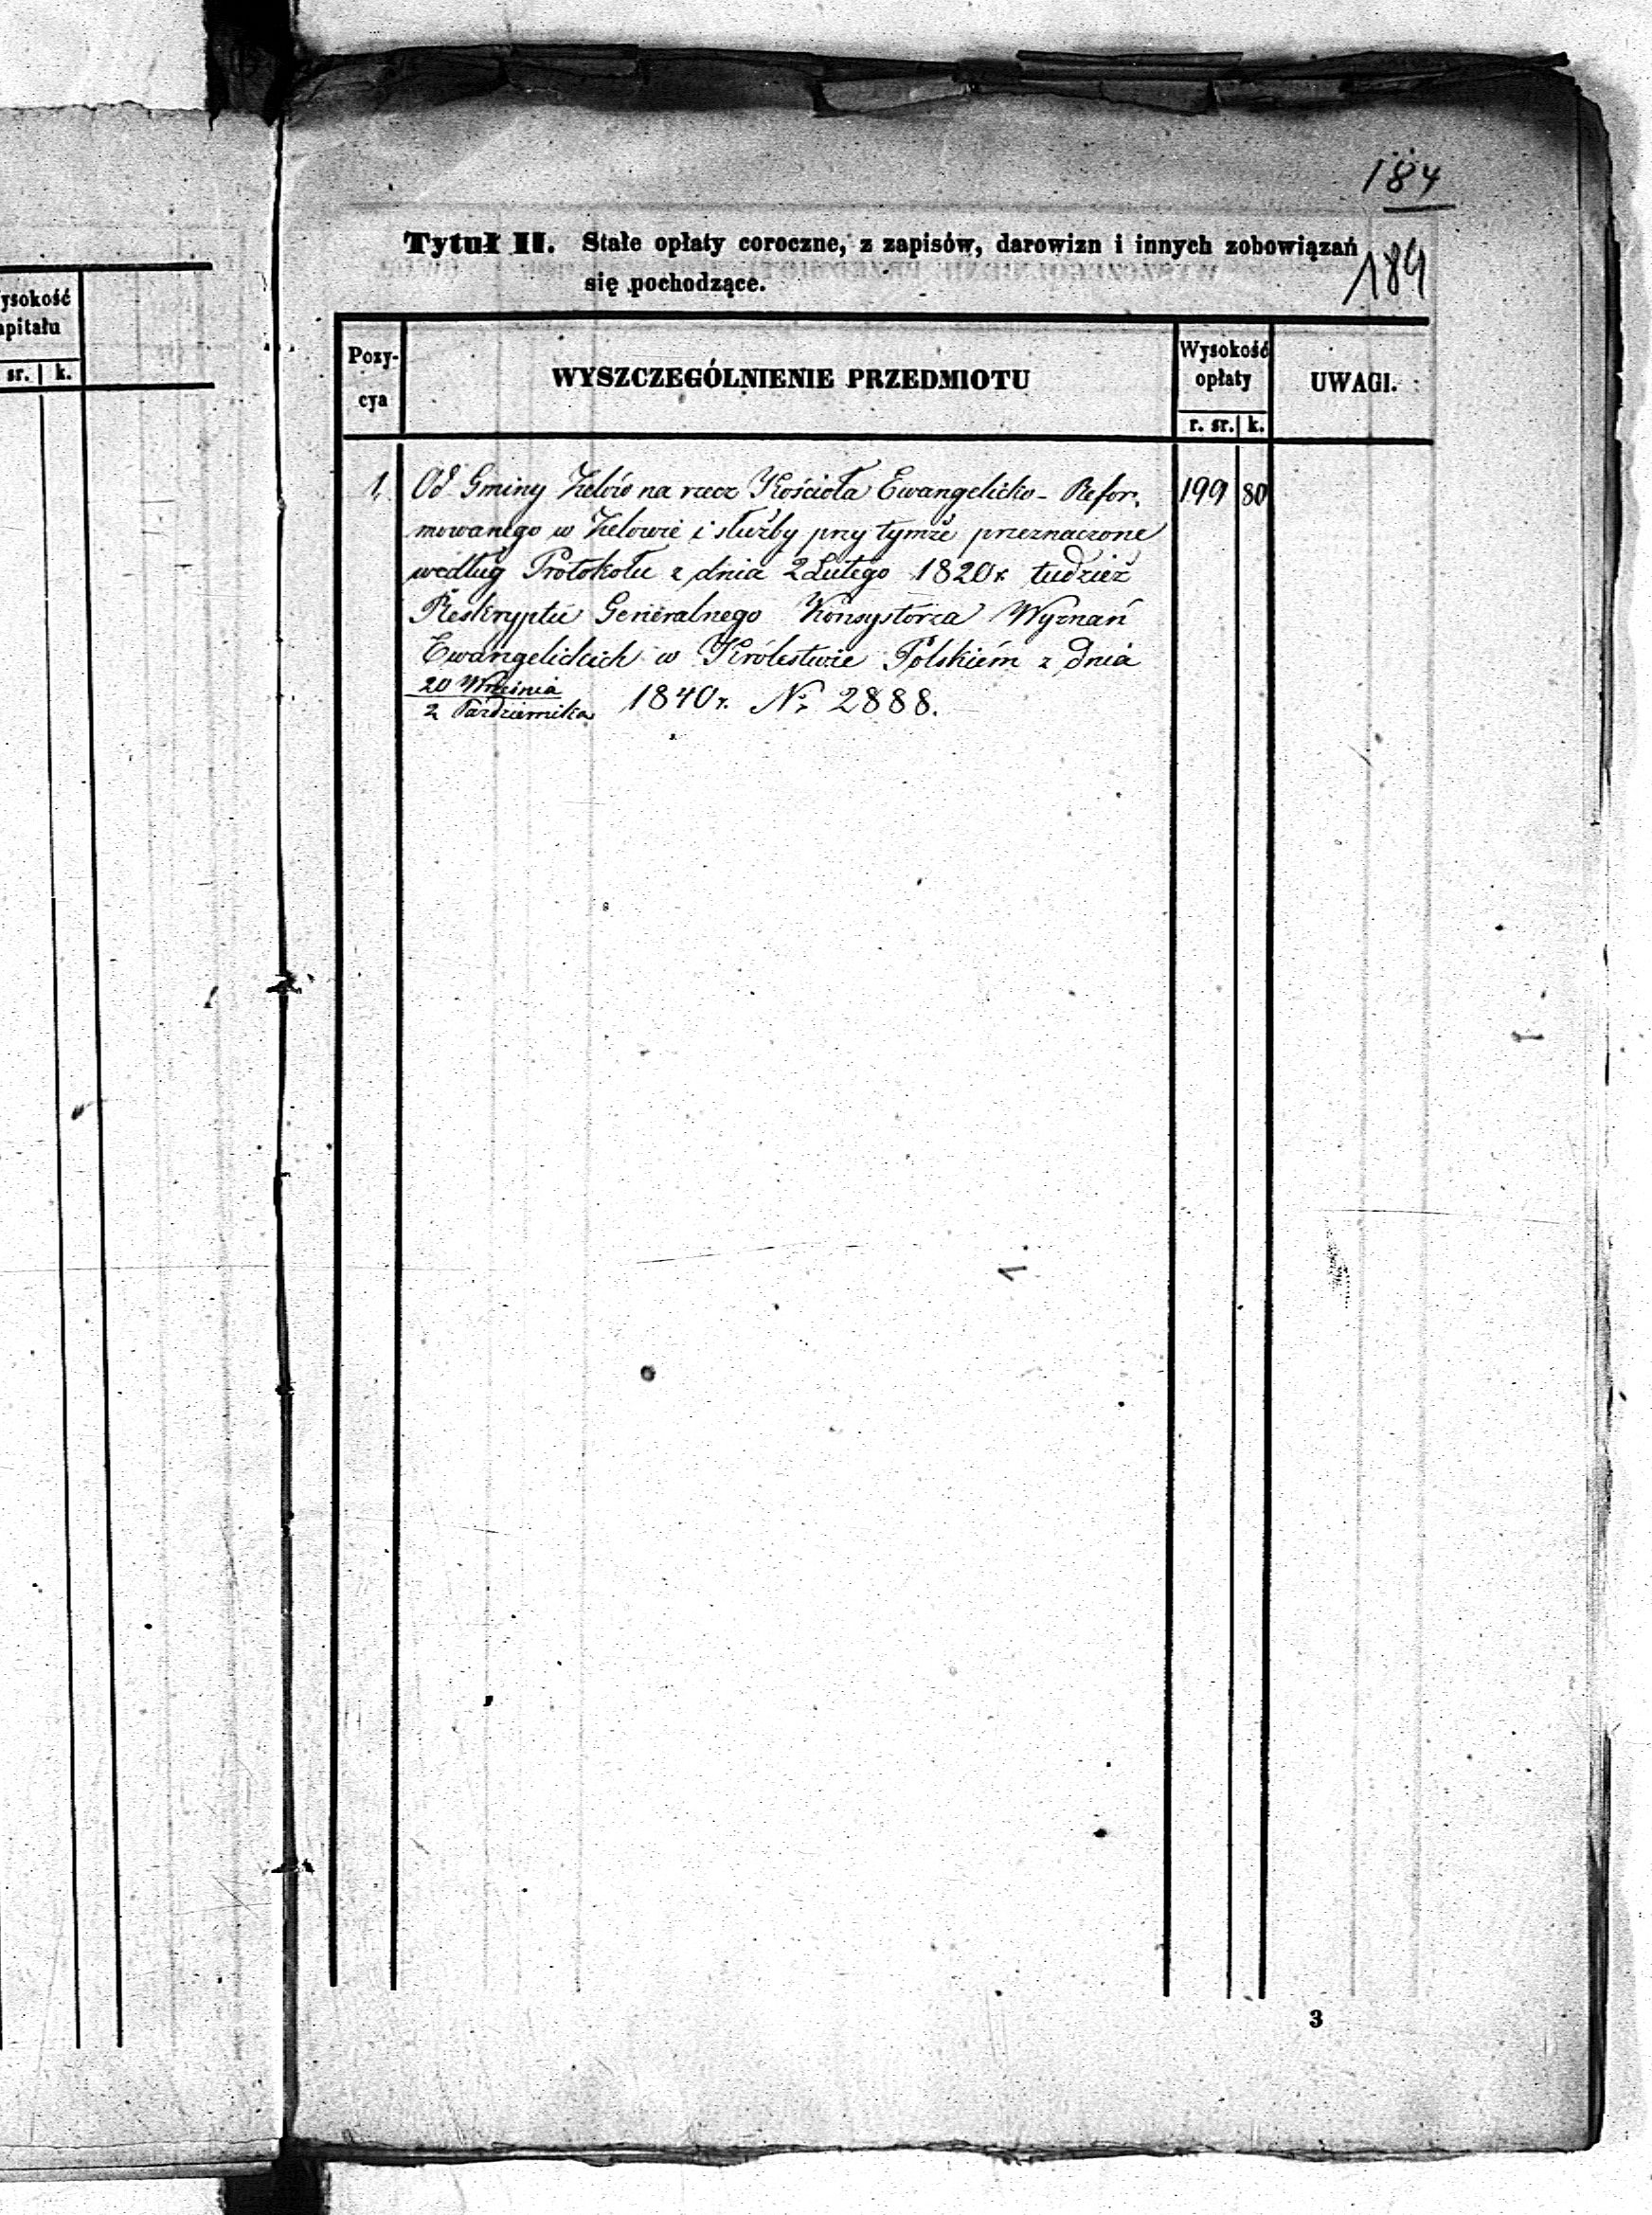 ysokość
apitału
sr. k.
184
189
Tytuł II. Stałe opłaty coroczne, z zapisów, darowizn i innych zobowiązań
się pochodzące.
Pozy-
cya
WYSZCZEGÓLNIENIE PRZEDMIOTU
Wysokość
opłaty
r. sr. k.
UWAGI.
1. Od Gminy Zelów na rzecz Kościoła Ewangelicko-Refor- 199 80
mowanego w Zelowie i służby przy tymże przeznaczone
według Protokołu z dnia 2 Lutego 1820 r. tudzież
Reskryptu Generalnego Konsystorza Wyznań
Ewangelickich w Królestwie Polskiém z dnia
20 Września
2 Października 1840 r. Nr. 2888.
3